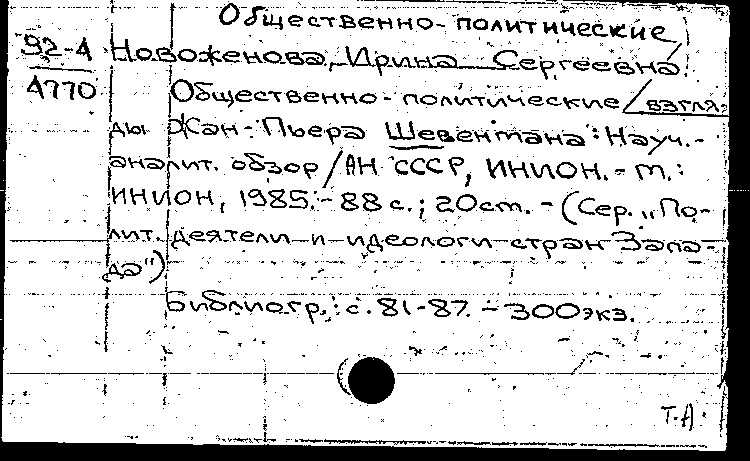 Общественно-политические
92-4 Новоженова, Ирина Сергеевна.
4770 Общественно-политические/взгля-
ды Жан-Пьера Шевенмана: Науч.-
аналит. обзор/АН СССР, ИНИОН.-М.:
ИНИОН, 1985.-88 с.; 20 см. - (Сер. „По-
лит. деятели и идеологи стран Запа-
да")
Библиогр.: с. 81-87. - 300 экз.
Т.А.